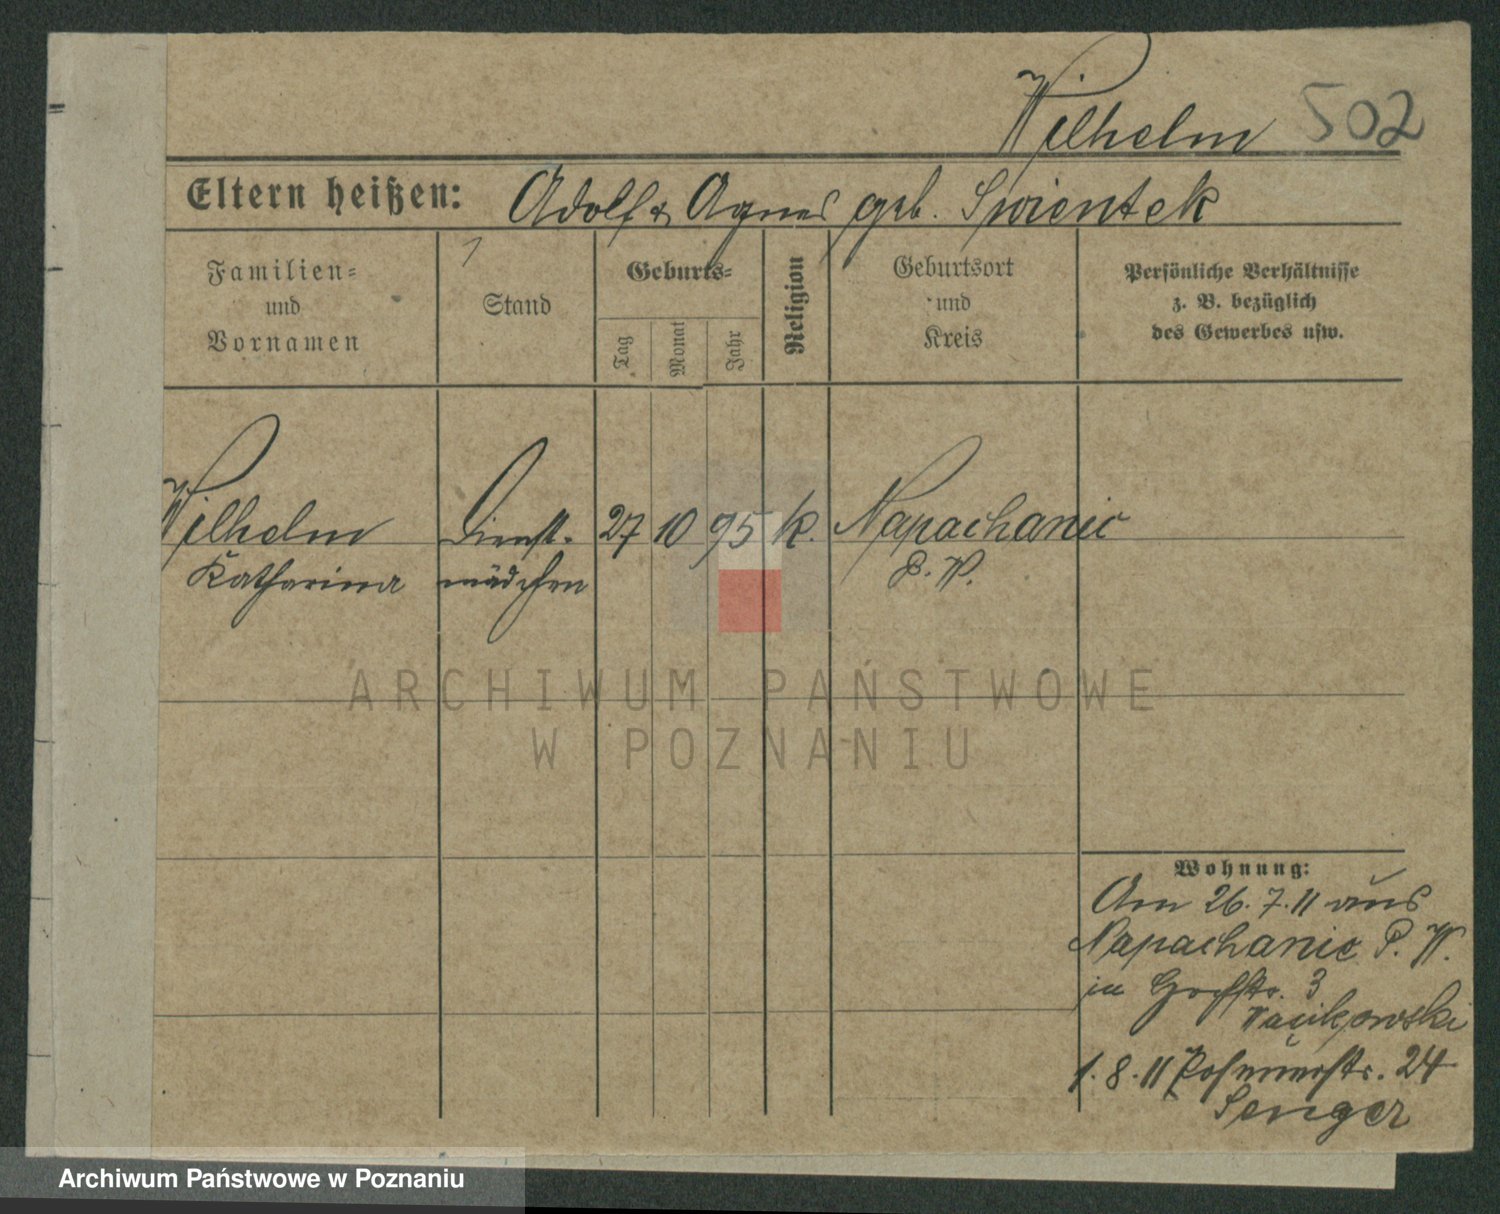 Wilhelm 502
Eltern heißen: Adolf & Agnes geb. Swientek
Familien-
und
Vornamen
Stand
Geburts-
Tag
Monat
Jahr
Religion
Geburtsort
und
Kreis
Persönliche Verhältnisse
z. B. bezüglich
des Gewerbes usw.
Wilhelm Dienst- 27 10 95 k. Napachanie
Katharina mädchen P. W.
ARCHIWUM PAŃSTWOWE
W POZNANIU
Wohnung:
Am 26.7.11 aus
Napachanie P. W.
in 3
1.8.11 Posenerstr. 24
Senger
Archiwum Państwowe w Poznaniu